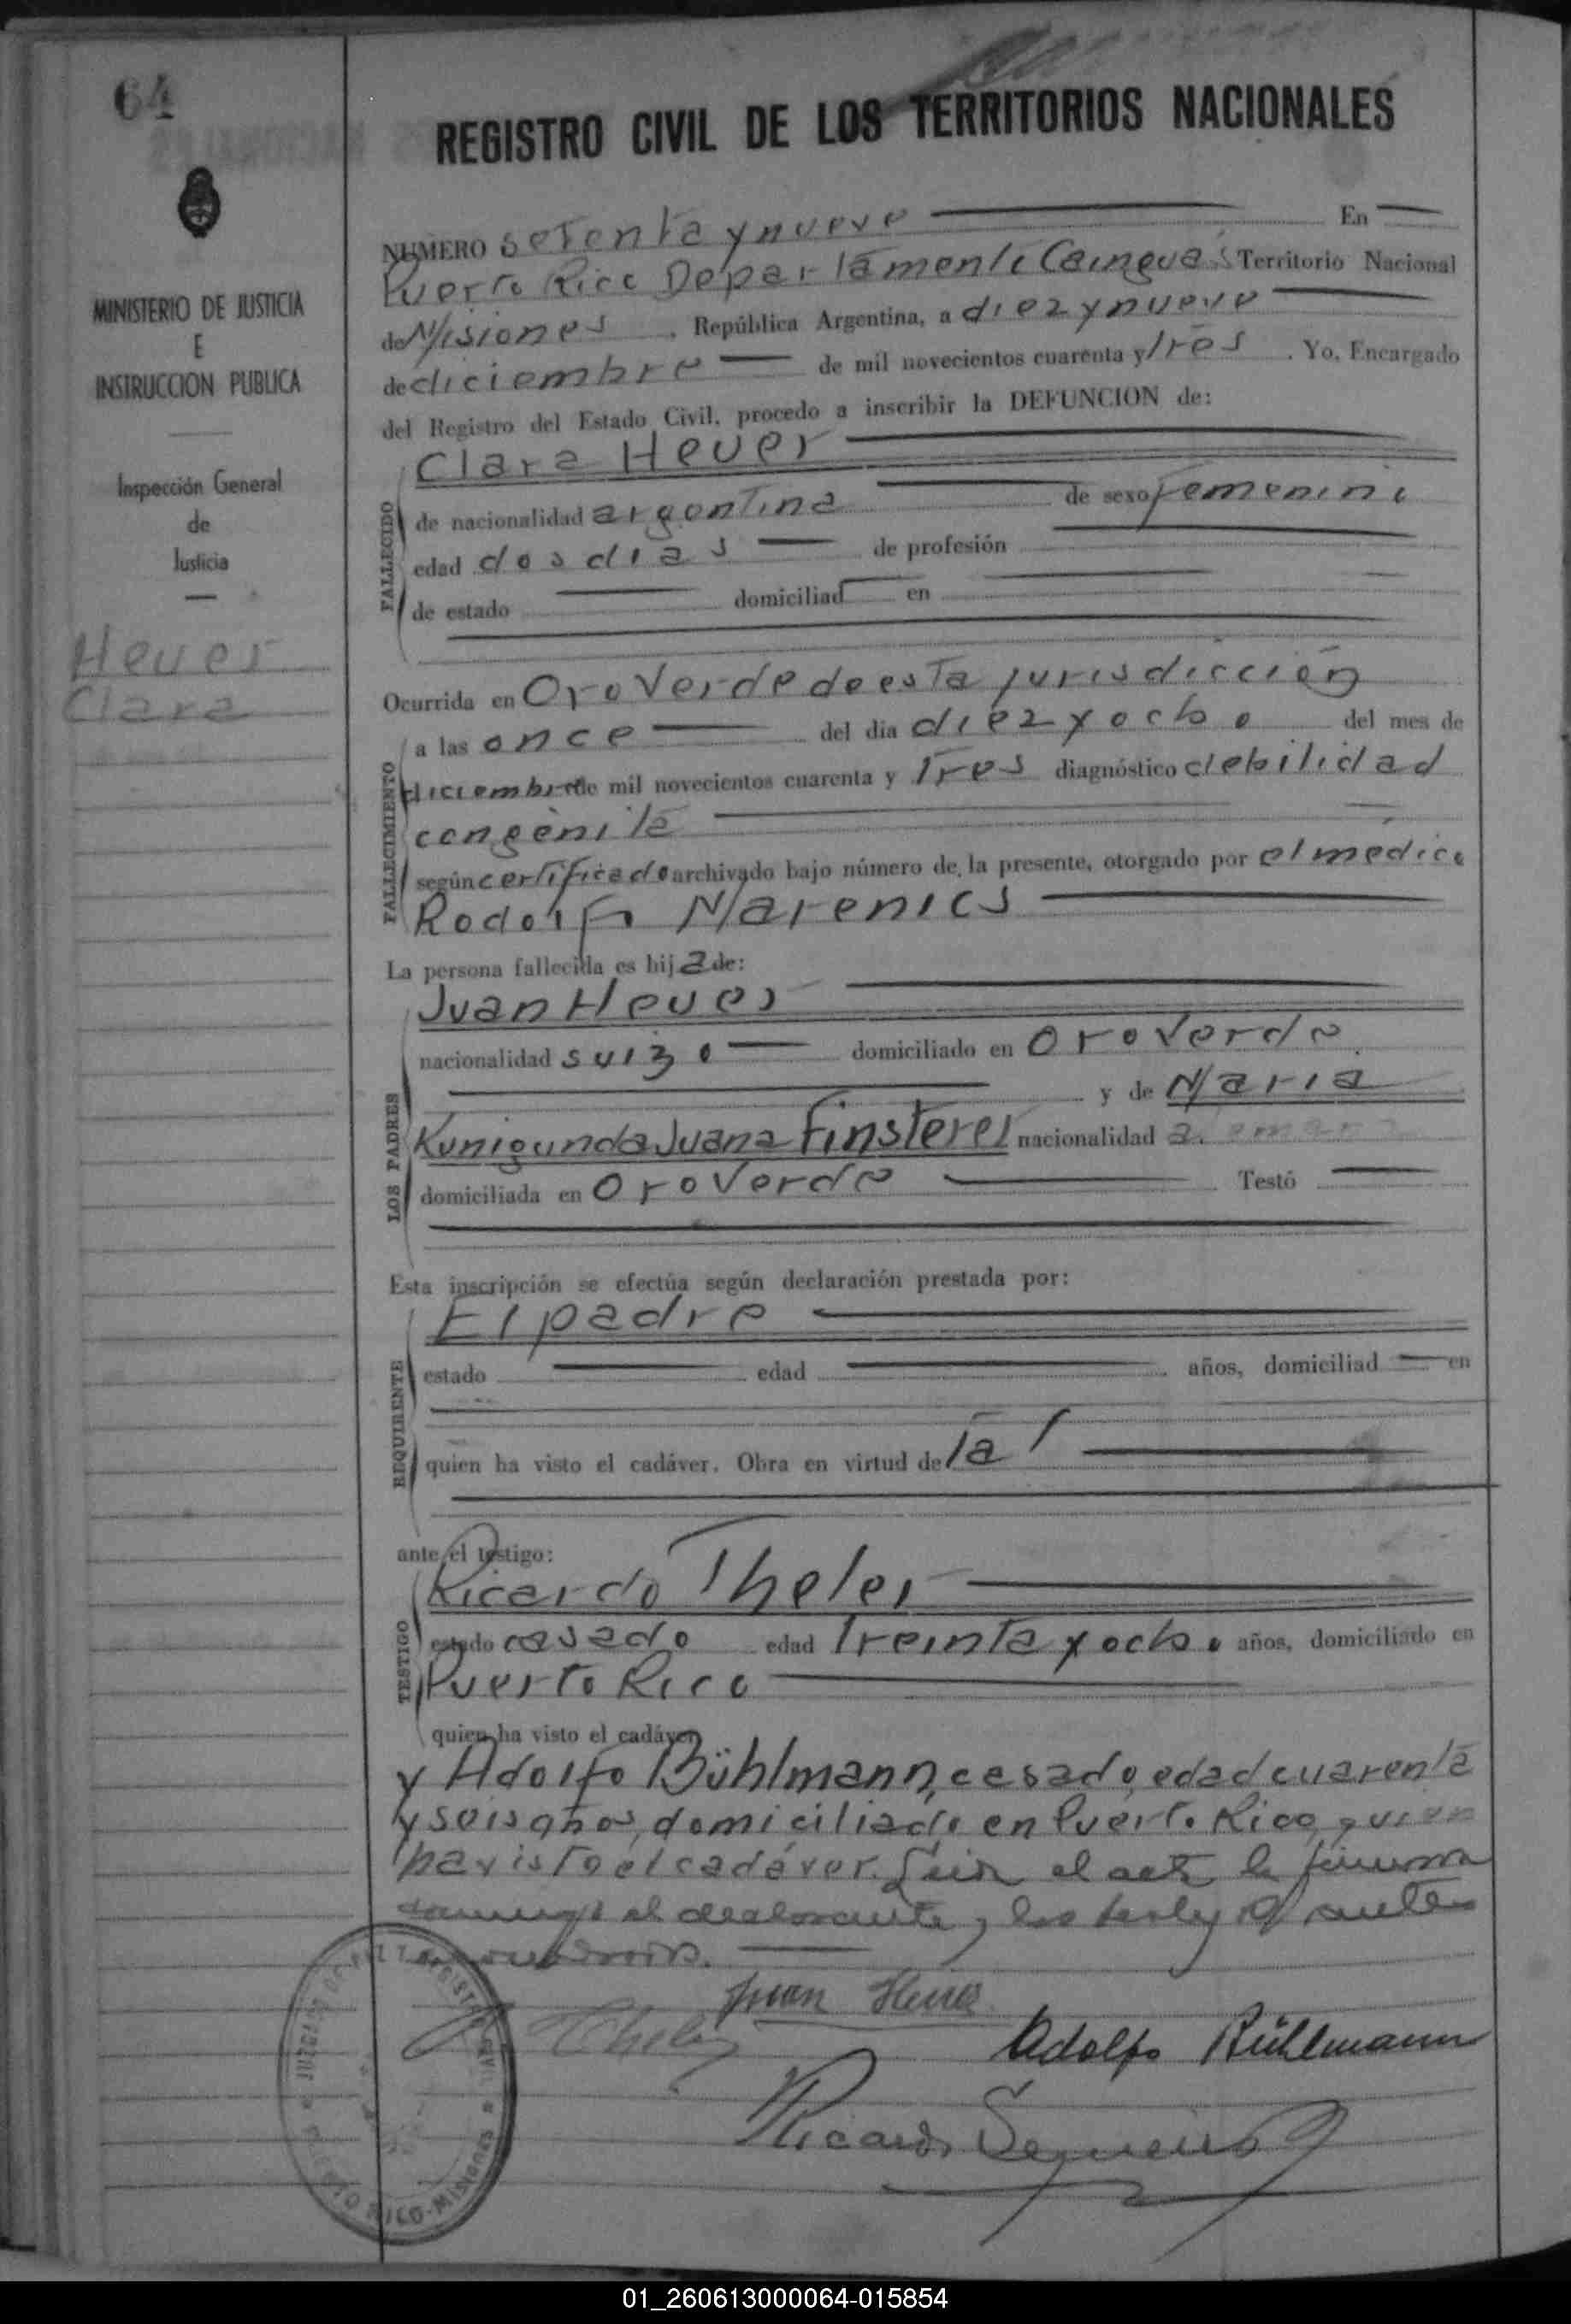 64
REGISTRO CIVIL DE LOS TERRITORIOS NACIONALES
MINISTERIO DE JUSTICIA
E
INSTRUCCION PUBLICA
Inspección General
de
Justicia
Heuer
Clara
NUMERO setenta y nueve En
Puerto Rico Departamento Cainguás Territorio Nacional
de Misiones, República Argentina, a diez y nueve
de diciembre de mil novecientos cuarenta y tres. Yo, Encargado
del Registro del Estado Civil, procedo a inscribir la DEFUNCION de:
FALLECIDO
Clara Heuer
de nacionalidad argentina de sexo femenino
edad dos dias de profesión
de estado domiciliad en
Ocurrida en Oro Verde de esta jurisdicción
FALLECIMIENTO
a las once del día diez y ocho del mes de
diciembre de mil novecientos cuarenta y tres diagnóstico debilidad
congénita
según certificado archivado bajo número de la presente, otorgado por el médico
Rodolfo Marenics
La persona fallecida es hija de:
LOS PADRES
Juan Heuer
nacionalidad suizo domiciliado en Oro Verde
y de Maria
Kunigunda Juana Finsterer nacionalidad
domiciliada en Oro Verde Testó
Esta inscripción se efectúa según declaración prestada por:
REQUIRENTE
El padre
estado edad años, domiciliad en
quien ha visto el cadáver. Obra en virtud de tal
ante el testigo:
TESTIGO
Ricardo Theler
estado casado edad treinta y ocho años, domiciliado en
Puerto Rico
quien ha visto el cadáver
y Adolfo Bühlmann, casado, edad cuarenta
y seis años, domiciliado en Puerto Rico, quien
ha visto el cadáver. Leida el acta la firman
conmigo el declarante y los testigos antes
Juan Heuer
Theler
Adolfo Bühlmann
Ricardo Sequeiro
01_260613000064-015854